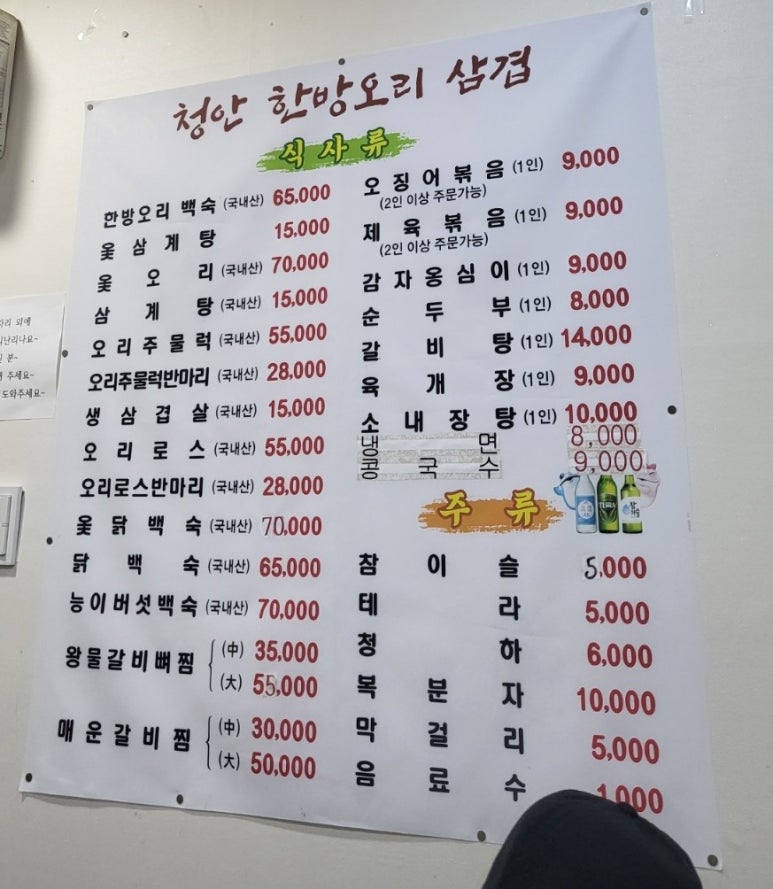 청안 한방오리 삼겹
식사류
한방오리백숙 (국내산) 65,000
옻삼계탕 15,000
옻오리 (국내산) 70,000
삼계탕 (국내산) 15,000
오리주물럭 (국내산) 55,000
오리주물럭반마리 (국내산) 28,000
생삼겹살 (국내산) 15,000
오리로스 (국내산) 55,000
오리로스반마리 (국내산) 28,000
옻닭백숙 (국내산) 70,000
닭백숙 (국내산) 65,000
능이버섯백숙 (국내산) 70,000
왕물갈비뼈찜 (中) 35,000
(大) 55,000
매운갈비찜 (中) 30,000
(大) 50,000
오징어볶음 (1인) 9,000
(2인 이상 주문가능)
제육볶음 (1인) 9,000
(2인 이상 주문가능)
감자옹심이 (1인) 9,000
순두부 (1인) 8,000
갈비탕 (1인) 14,000
육개장 (1인) 9,000
소내장탕 (1인) 10,000
냉면 8,000
콩국수 9,000
주류
TERRA
참이슬 5,000
테라 5,000
청하 6,000
복분자 10,000
막걸리 5,000
음료수 1,000
주세요~
도와주세요~